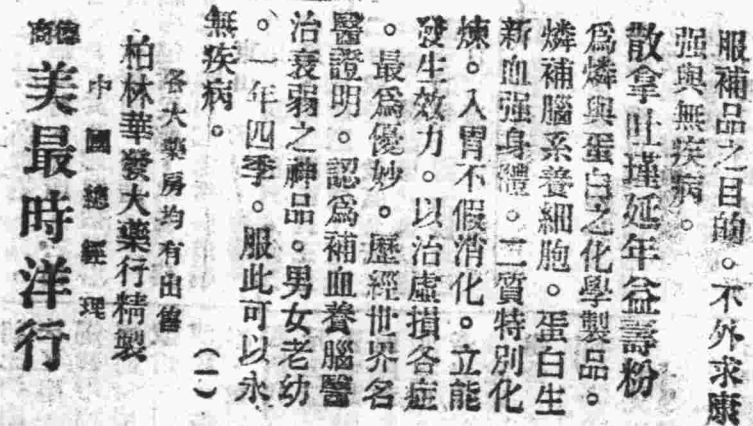 服補品之目的。不外求康
强與無疾病。
散拿吐瑾延年益壽粉
爲燐與蛋白之化學製品。
燐補腦系養細胞。蛋白生
新血强身體。二質特別化
煉。入胃不假消化。立能
發生效力。以治虛損各症
。最爲優妙。歷經世界名
醫證明。認爲補血養腦醫
治衰弱之神品。男女老幼
。一年四季。服此可以永
無疾病。 (一)
各大藥房均有出售
柏林華發大藥行精製
中國總經理
德商 美最時洋行